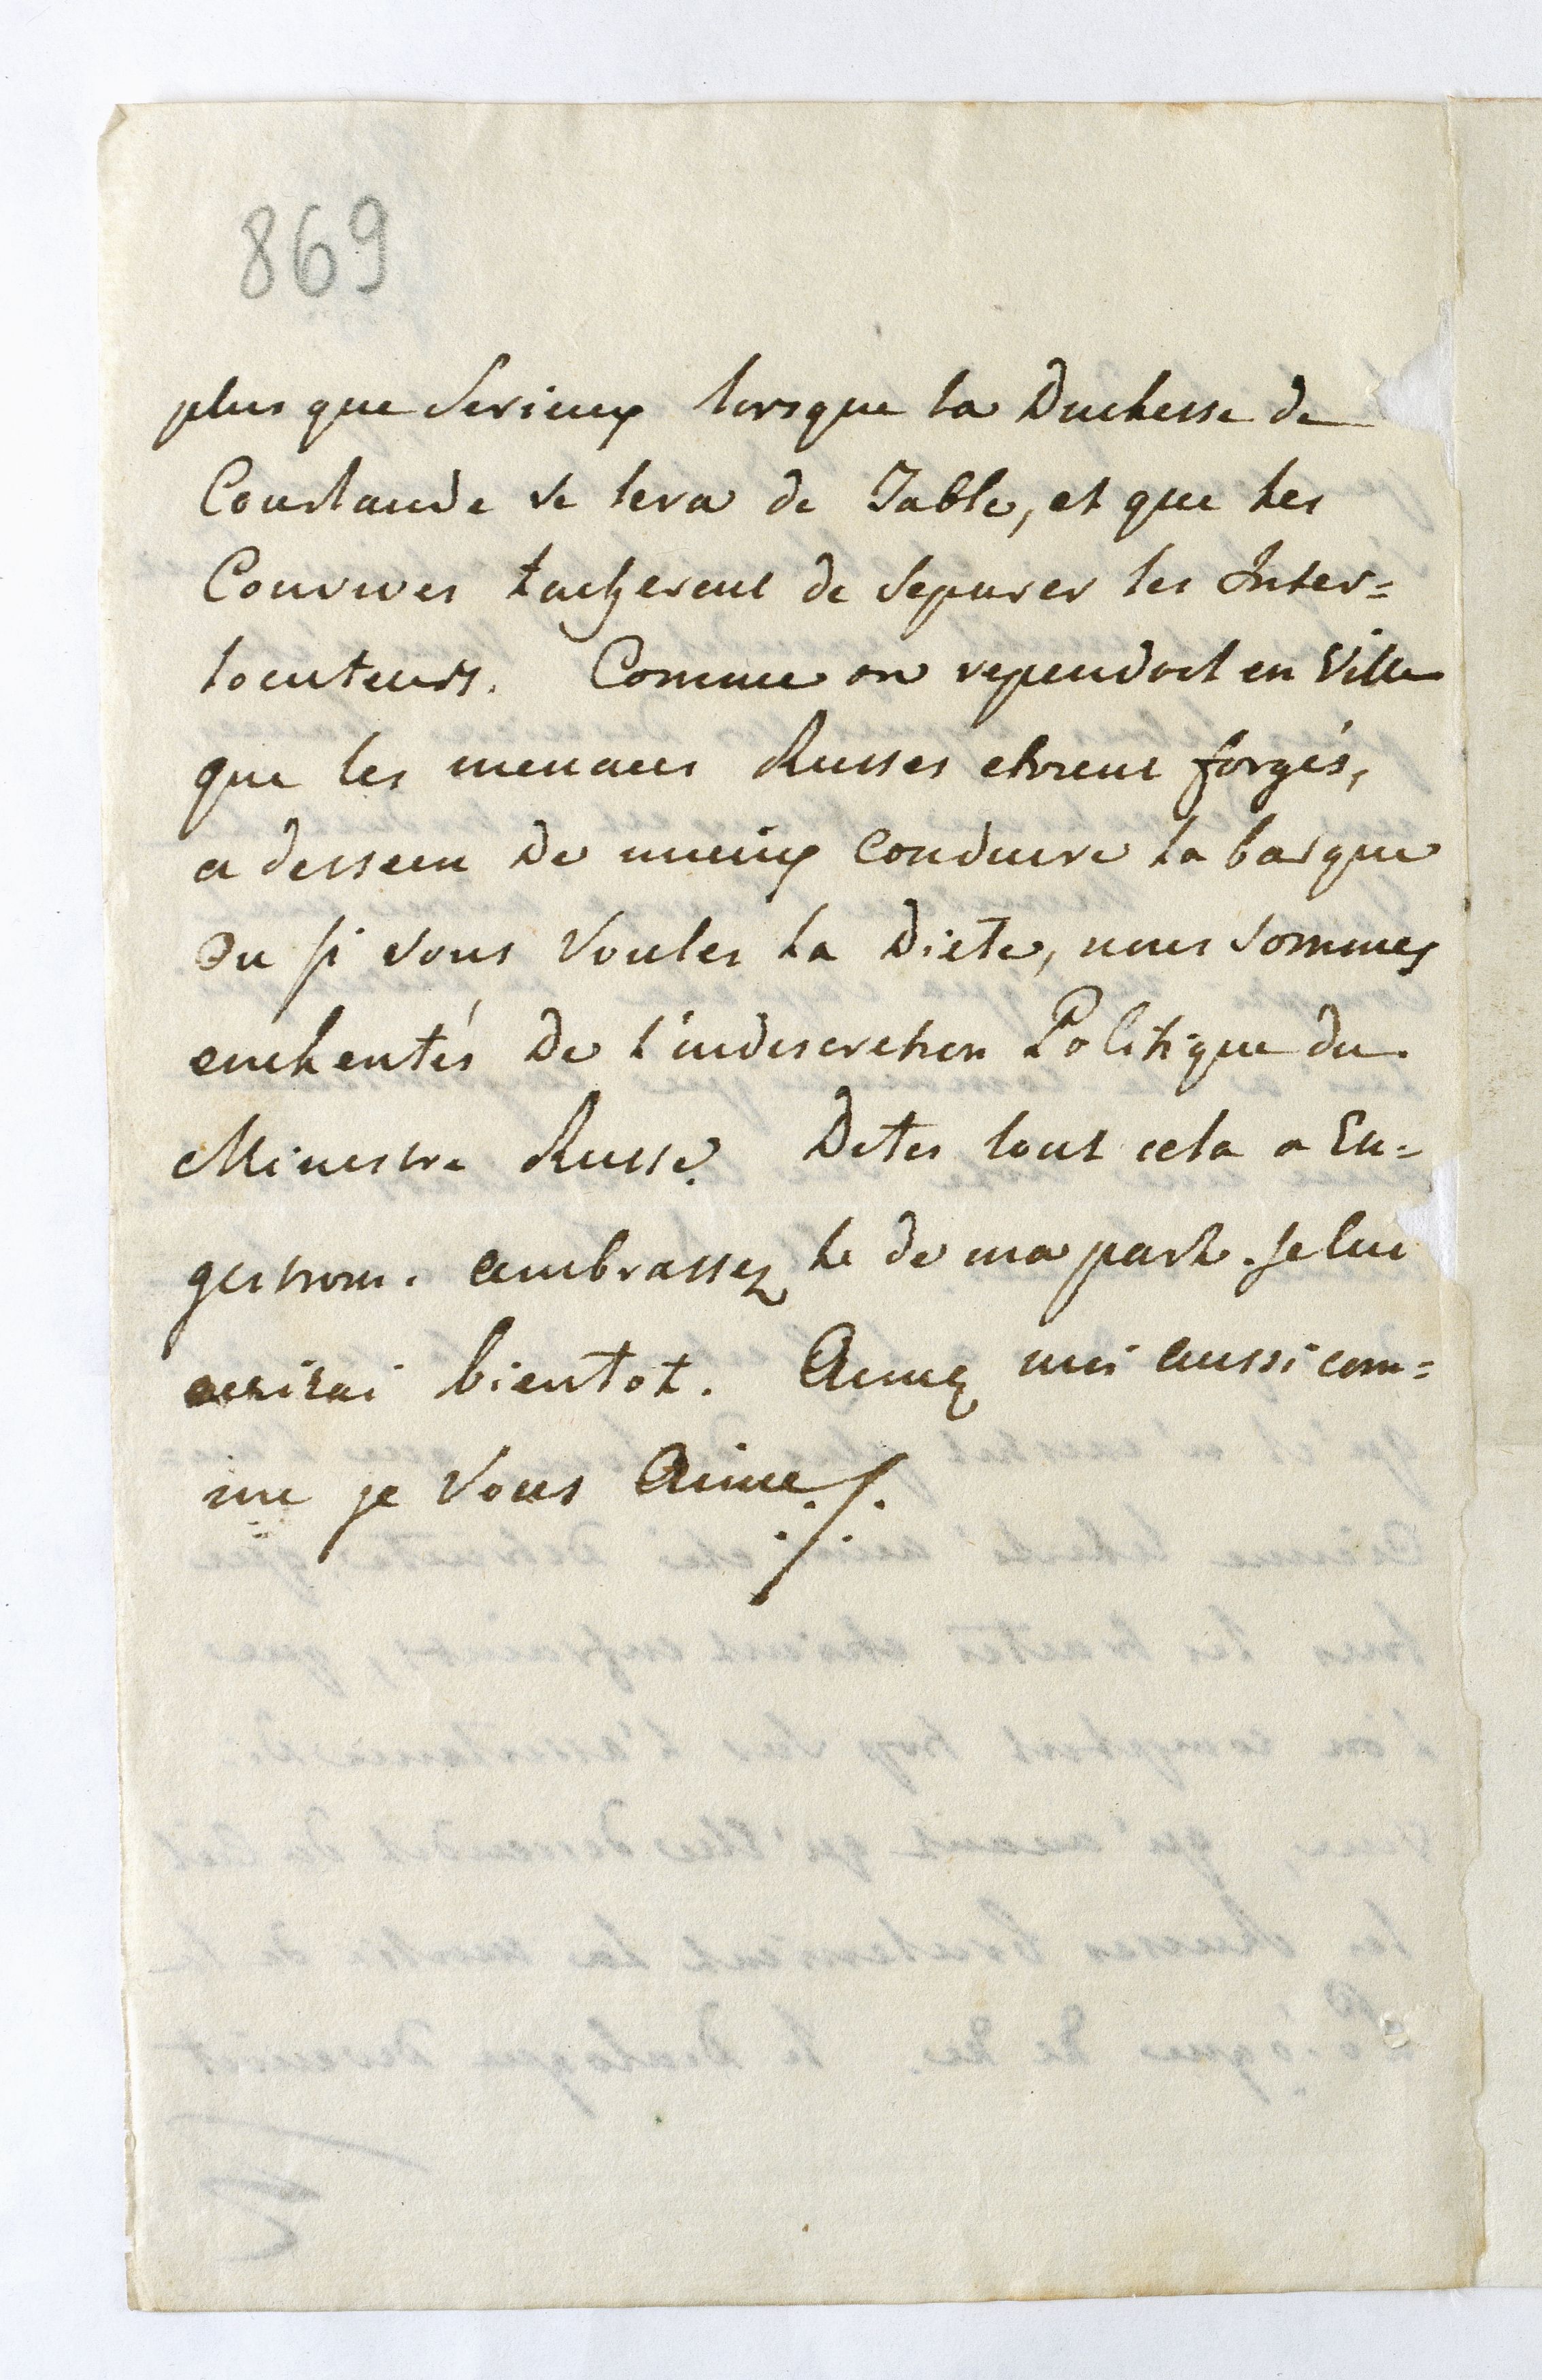 869
plus que Serieux lorsque la Duchesse de
Courlande se leva de Table, et que les
Convives tacherent de Separer les Inter=
locuteurs. Comme on rependoit en Ville
que les menaces Russes etoient forgés,
a dessein de mieux Conduire la barque
Ou si vous Voules la Diete, nous Sommes
enchentés de l'indiscretion Politique du
Ministre Russe. Dites tout cela a En=
gestrom. embrassez le de ma part. Je lui
ecrirai bientot. Aimez moi aussi com=
me je Vous Aime